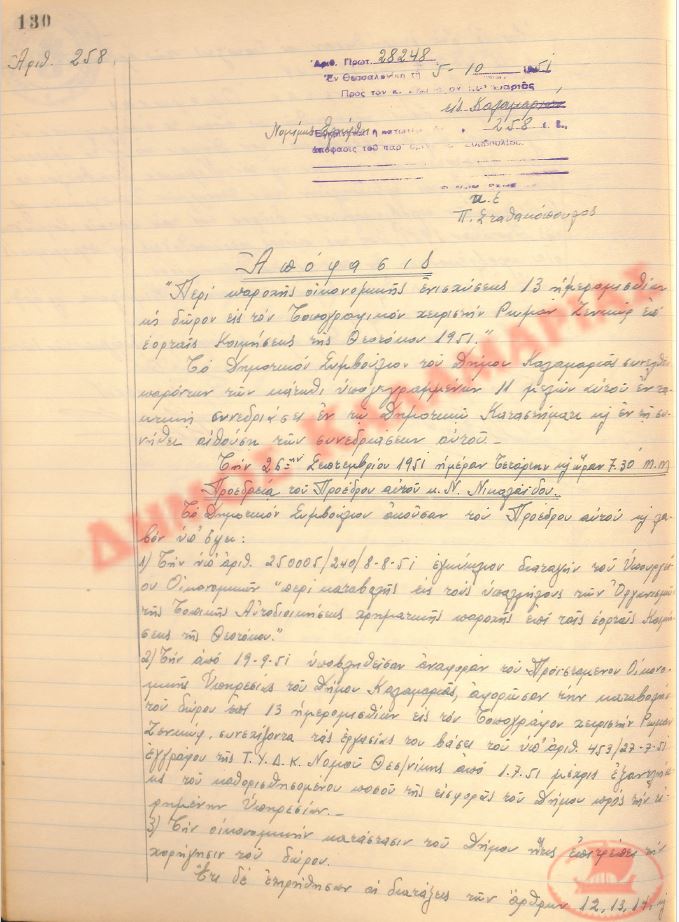 130
Ἀριθ. 258.
Ἀριθ. Πρωτ. 28248
Ἐν Θεσσαλονίκῃ τῇ 5-10 1951
Πρὸς τὸν κ.
εἰς Καλαμαριάν
258 ἐ. ἔ.,
ἀπόφασις τοῦ
Π. Σταθακόπουλος
Ἀπόφασις
"Περὶ παροχῆς οἰκονομικῆς ἐνισχύσεως 13 ἡμερομισθίων
ὡς δῶρον εἰς τὸν Τοπογραφικὸν χειριστὴν Ρωμαν Ζενκώφ ἐπὶ
ἑορταῖς Κοιμήσεως τῆς Θεοτόκου 1951."
Τὸ Δημοτικὸν Συμβούλιον τοῦ Δήμου Καλαμαριᾶς συνελθὸν
παρόντων τῶν κάτωθι ὑπογεγραμμένων 11 μελῶν αὐτοῦ ἐν τα-
κτικῇ συνεδριάσει ἐν τῷ Δημοτικῷ Καταστήματι κ ἐν τῇ συ-
νήθει αἰθούσῃ τῶν συνεδριάσεων αὐτοῦ_
Τὴν 26ην Σεπτεμβρίου 1951 ἡμέραν Τετάρτην κ ὥραν 7.30 μ.μ
Προεδρείᾳ τοῦ Προέδρου αὐτοῦ κ. Ν. Νικολαΐδου.
Τὸ Δημοτικὸν Συμβούλιον ἀκοῦσαν τοῦ Προέδρου αὐτοῦ κ λα-
βὸν ὑπ' ὄψει:
1) Τὴν ὑπ' ἀριθ. 250005/240/8-8-51 ἐγκύκλιον διαταγὴν τοῦ Ὑπουργεί-
ου Οἰκονομικῶν "περὶ καταβολῆς εἰς τοὺς ὑπαλλήλους τῶν Ὀργανισμῶν
τῆς Τοπικῆς Αὐτοδιοικήσεως χρηματικῆς παροχῆς ἐπὶ ταῖς ἑορταῖς Κοιμή-
σεως τῆς Θεοτόκου."
2) Τὴν ἀπὸ 19-9-51 ὑποβληθεῖσαν ἀναφορὰν τοῦ Προϊσταμένου Οἰκονο-
μικῆς Ὑπηρεσίας τοῦ Δήμου Καλαμαριᾶς, ἀφορῶσαν τὴν καταβολὴν
τοῦ δώρου ἐπὶ 13 ἡμερομισθίων εἰς τὸν Τοπογράφον χειριστὴν Ρωμαν
Ζενκώφ, συνεχίζοντα τὰς ἐργασίας του βάσει τοῦ ὑπ' ἀριθ. 453/27-7-51
ἐγγράφου τῆς Τ.Υ.Δ.Κ. Νομοῦ Θεσ/νίκης ἀπὸ 1.7.51 μέχρις ἐξαντλήσεως
τοῦ καθορισθησομένου ποσοῦ τῆς εἰσφορᾶς τοῦ Δήμου πρὸς τὴν εἰ-
ρημένην Ὑπηρεσίαν._
3) Τὴν οἰκονομικὴν κατάστασιν τοῦ Δήμου ἥτις ἐπιτρέπει τὴν
χορήγησιν τοῦ δώρου.
Ἔτι δὲ ἐτηρήθησαν αἱ διατάξεις τῶν ἄρθρων 12, 13, 14, κ
ΔΗΜΟΣ ΚΑΛΑΜΑΡΙΑΣ